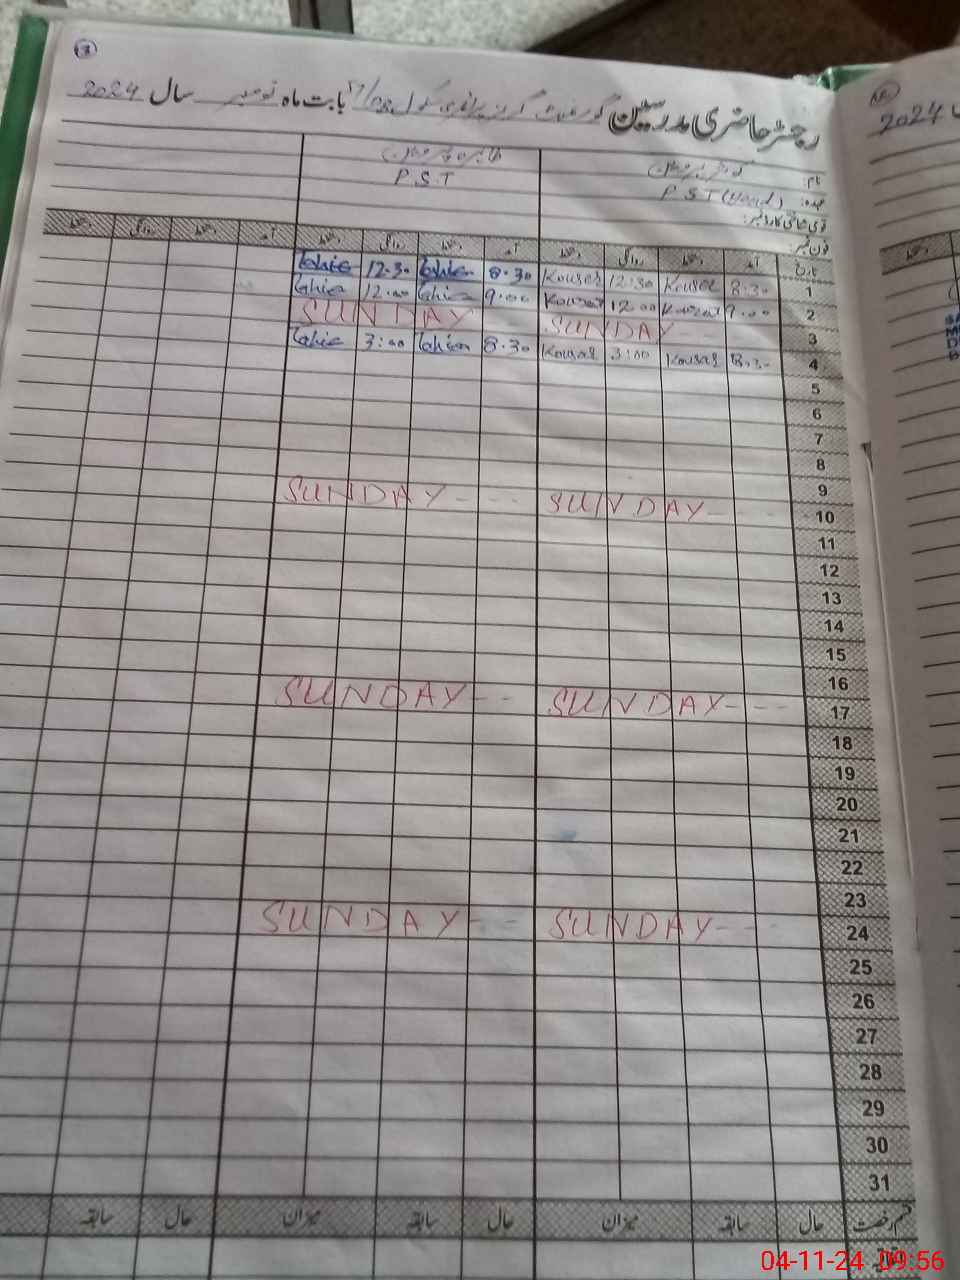 رجسٹر حاضری مدرسین گورنمنٹ گرلز پرائمری سکول بابت ماہ نومبر سال 2024
2024
نام:
طاہرہ پروین
عہدہ: P.S.T (Head)
P.S.T
قومی شناختی کارڈ نمبر:
فون نمبر:
تاریخ آمد دستخط روانگی دستخط آمد دستخط روانگی دستخط آمد دستخط روانگی دستخط
1 8:30 Kousar 12:30 Kousar 8.30 12.30
2 9.00 Kousar 12.00 Kousar 9.00 12.00
3 SUNDAY SUNDAY
4 8.30 Kousar 3:00 Kousar 8.30 3:00
5
6
7
8
9
10 SUNDAY --- SUNDAY ---
11
12
13
14
15
16
17 SUNDAY --- SUNDAY --
18
19
20
21
22
23
24 SUNDAY --- SUNDAY --
25
26
27
28
29
30
31
قسم رخصت حال سابقہ میزان حال سابقہ میزان حال سابقہ
04-11-24 09:56